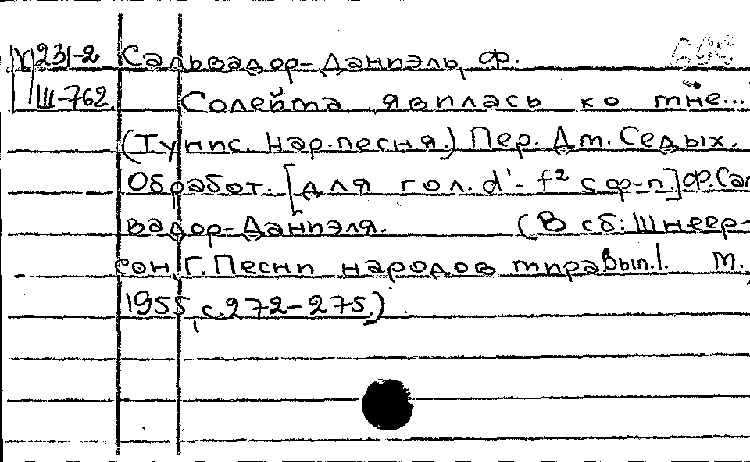 У231-2 Сальвадор-Даниэль, Ф.
Ш-762 Солейма явилась ко мне...
(Тунис. нар. песня.) Пер. Дм. Седых.
Обработ. [для гол. d'-f² с ф-п.] Ф. Сал
вадор-Даниэля. (В сб: Шнеер-
сон, Г. Песни народов мира. Вып. I. М.,
1955, с. 272-275.)